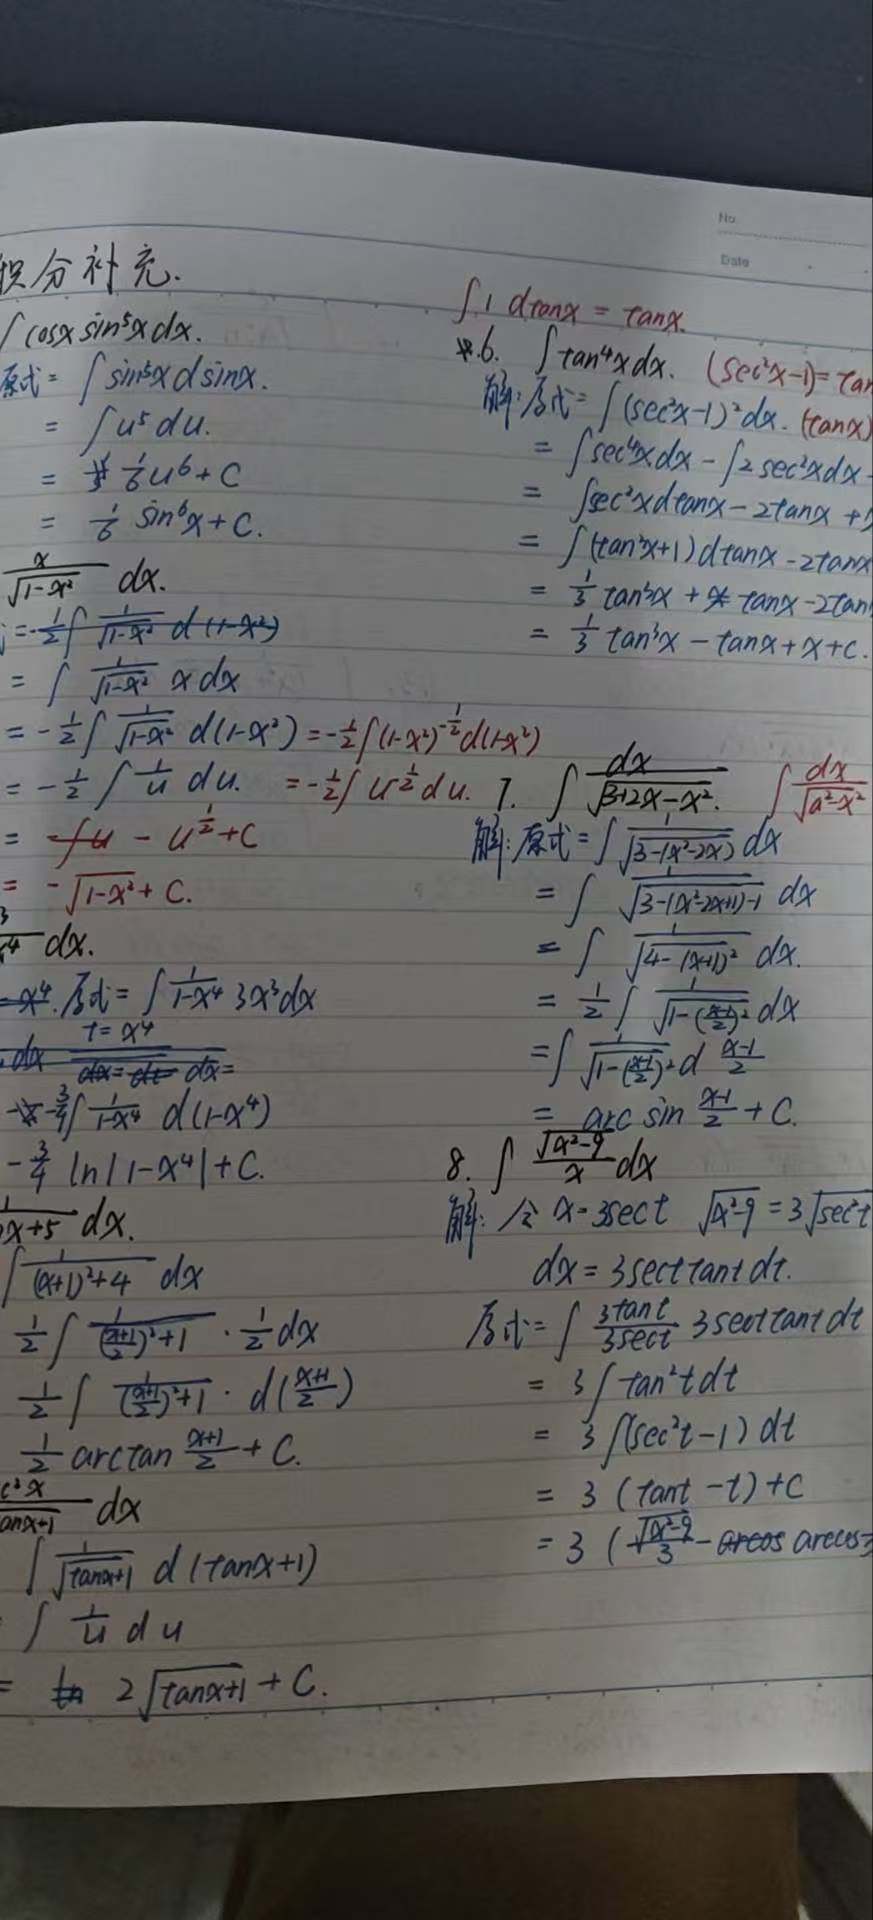 No.
Date
积分补充.
∫cosx sin⁵x dx.
原式 = ∫ sin⁵x d sinx.
= ∫ u⁵ du.
= 1/6 u⁶ + C
= 1/6 sin⁶x + C.
x/√(1-x²) dx.
= -1/2 ∫ 1/√(1-x²) d(1-x²)
= ∫ 1/√(1-x²) x dx
= -1/2 ∫ 1/√(1-x²) d(1-x²) = -1/2 ∫(1-x²)^(-1/2) d(1-x²)
= -1/2 ∫ 1/u du. = -1/2 ∫ u^(1/2) du.
= - u^(1/2) + C
= -√(1-x²) + C.
dx.
原式 = ∫ 1/(1-x⁴) 3x³dx
t = x⁴
dx dx = dt dx =
-3/4 ∫ 1/(1-x⁴) d(1-x⁴)
-3/4 ln|1-x⁴| + C.
x+5 dx.
∫ 1/((x+1)²+4) dx
1/2 ∫ 1/(((x+1)/2)²+1) · 1/2 dx
1/2 ∫ 1/(((x+1)/2)²+1) · d((x+1)/2)
1/2 arctan (x+1)/2 + C.
c²x/anx+1 dx
∫ 1/√(tanx+1) d(tanx+1)
∫ 1/u du
= 2√(tanx+1) + C.
∫ 1 dtanx = tanx.
*6. ∫tan⁴x dx. (sec²x-1) = tan
解: 原式 = ∫(sec²x-1)² dx. (tanx)
= ∫sec⁴x dx - ∫2sec²x dx
= ∫sec²x dtanx - 2tanx +
= ∫(tan²x+1) dtanx - 2tanx
= 1/3 tan³x + tanx - 2tan
= 1/3 tan³x - tanx + x + C.
7. ∫ dx/√(3+2x-x²). ∫ dx/√(a²-x²)
解: 原式 = ∫ 1/√(3-(x²-2x)) dx
= ∫ 1/√(3-(x²-2x+1)-1) dx
= ∫ 1/√(4-(x+1)²) dx.
= 1/2 ∫ 1/√(1-((x-1)/2)²) dx
= ∫ 1/√(1-((x-1)/2)²) d (x-1)/2
= arc sin (x-1)/2 + C.
8. ∫ √(x²-9)/x dx
解: 令 x = 3sect √(x²-9) = 3√(sec²t
dx = 3sect tant dt.
原式 = ∫ 3tant/3sect 3sect tant dt
= 3∫ tan²t dt
= 3∫(sec²t-1) dt
= 3 (tant - t) + C
= 3 (√(x²-9)/3 - arcos arccos